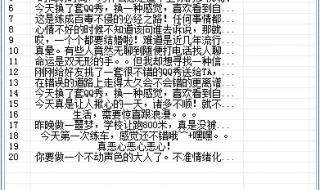 6 今天换了套QQ秀，换一种感觉，喜欢看到自...
7 这是练成百毒不侵的必经之路！任何事情都...
8 心情不好的时候不知道该向谁去诉说，那就...
9 哎，一个个都要结婚啦！难道是近几年流行...
10 真晕。有些人竟然无聊到随便打电话找人聊...
11 命运是双无形的手。。但我却想寻找一种信...
12 刚刚给好友挑了一套很不错的QQ秀送给TA，...
13 在错误的道路上走得太久会不会错的更离谱...
14 今天换了套QQ秀，换一种感觉，喜欢看到自...
15 今天真是让人揪心的一天，诸多不顺！就不...
16 生活，需要惊喜跟浪漫。。。
17 昨晚做一噩梦，学校让跑800米，真是没被...
18 今天第一次练车，感觉还不错哦^+嘿嘿。。
19 真恶心恶心恶心！
20 你要做一个不动声色的大人了。不准情绪化...